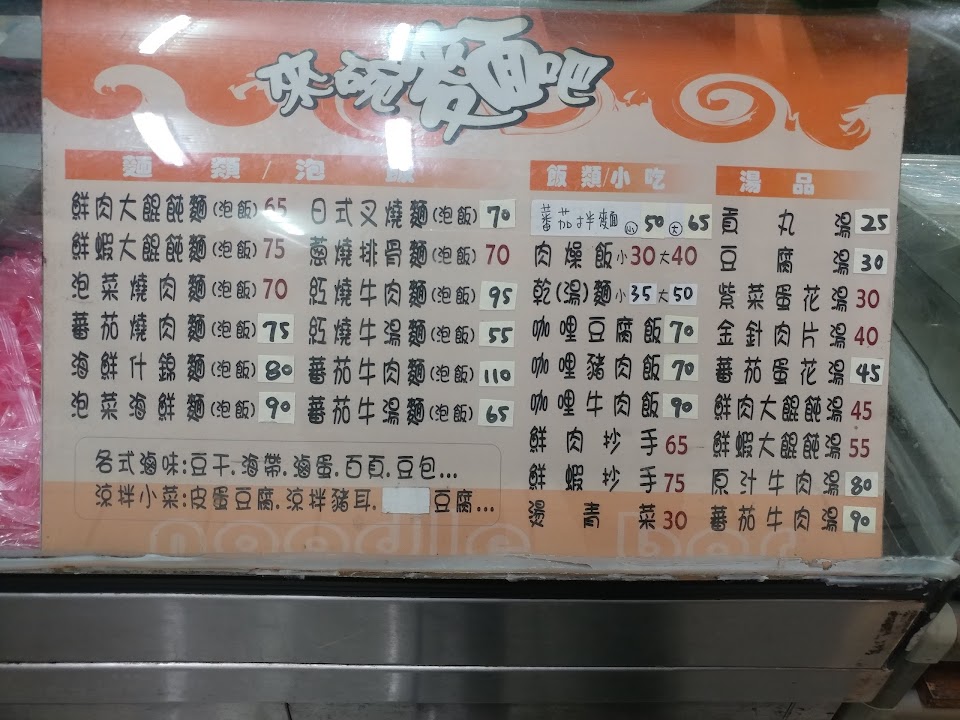 來碗麵吧
麵類/泡飯
鮮肉大餛飩麵(泡飯) 65
鮮蝦大餛飩麵(泡飯) 75
泡菜燒肉麵(泡飯) 70
蕃茄燒肉麵(泡飯) 75
海鮮什錦麵(泡飯) 80
泡菜海鮮麵(泡飯) 90
日式叉燒麵(泡飯) 70
蔥燒排骨麵(泡飯) 70
紅燒牛肉麵(泡飯) 95
紅燒牛湯麵(泡飯) 55
蕃茄牛肉麵(泡飯) 110
蕃茄牛湯麵(泡飯) 65
各式滷味:豆干.海帶.滷蛋.百頁.豆包...
涼拌小菜:皮蛋豆腐.涼拌豬耳. 豆腐...
飯類/小吃
蕃茄拌麵 小 50 大 65
肉燥飯 小30 大40
乾(湯)麵 小 35 大 50
咖哩豆腐飯 70
咖哩豬肉飯 70
咖哩牛肉飯 90
鮮肉抄手 65
鮮蝦抄手 75
燙青菜 30
湯品
貢丸湯 25
豆腐湯 30
紫菜蛋花湯 30
金針肉片湯 40
蕃茄蛋花湯 45
鮮肉大餛飩湯 45
鮮蝦大餛飩湯 55
原汁牛肉湯 80
蕃茄牛肉湯 90
noodle bar